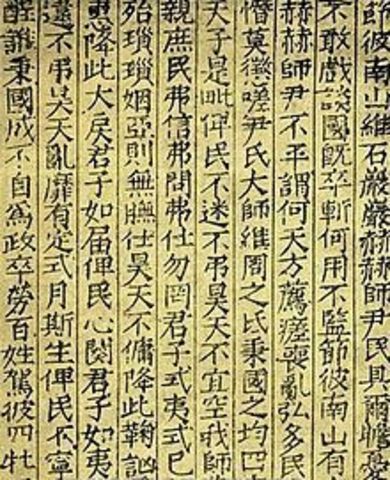 節彼南山維石巖巖赫赫師尹民具爾瞻憂
不敢戲談國既卒斬何用不監節彼南山有
赫赫師尹不平謂何天方薦瘥喪亂弘多民
憯莫懲嗟尹氏大師維周之氐秉國之均四
天子是毗俾民不迷不弔昊天不宜空我師
親庶民弗信弗問弗仕勿罔君子式夷式已
殆瑣瑣姻亞則無膴仕昊天不傭降此鞠訩
惠降此大戾君子如届俾民心闋君子如夷
違不弔昊天亂靡有定式月斯生俾民不寧
酲誰秉國成不自為政卒勞百姓駕彼四牡